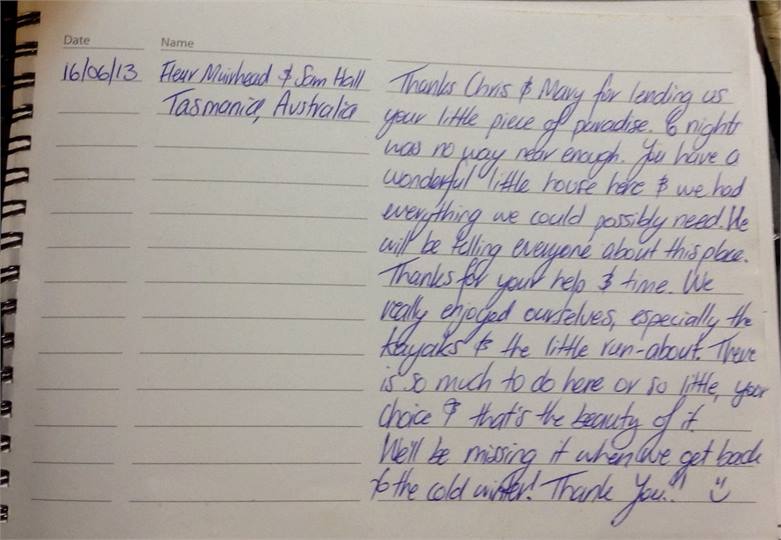 Date Name
16/06/13 Fleur Muirhead & Sam Hall
Tasmania, Australia
Thanks Chris & Mary for lending us
your little piece of paradise. 6 nights
was no way near enough. You have a
wonderful little house here & we had
everything we could possibly need. We
will be telling everyone about this place.
Thanks for your help & time. We
really enjoyed ourselves, especially the
kayaks & the little run-about. There
is so much to do here or so little, your
choice & that's the beauty of it.
We'll be missing it when we get back
to the cold winter! Thank You!!